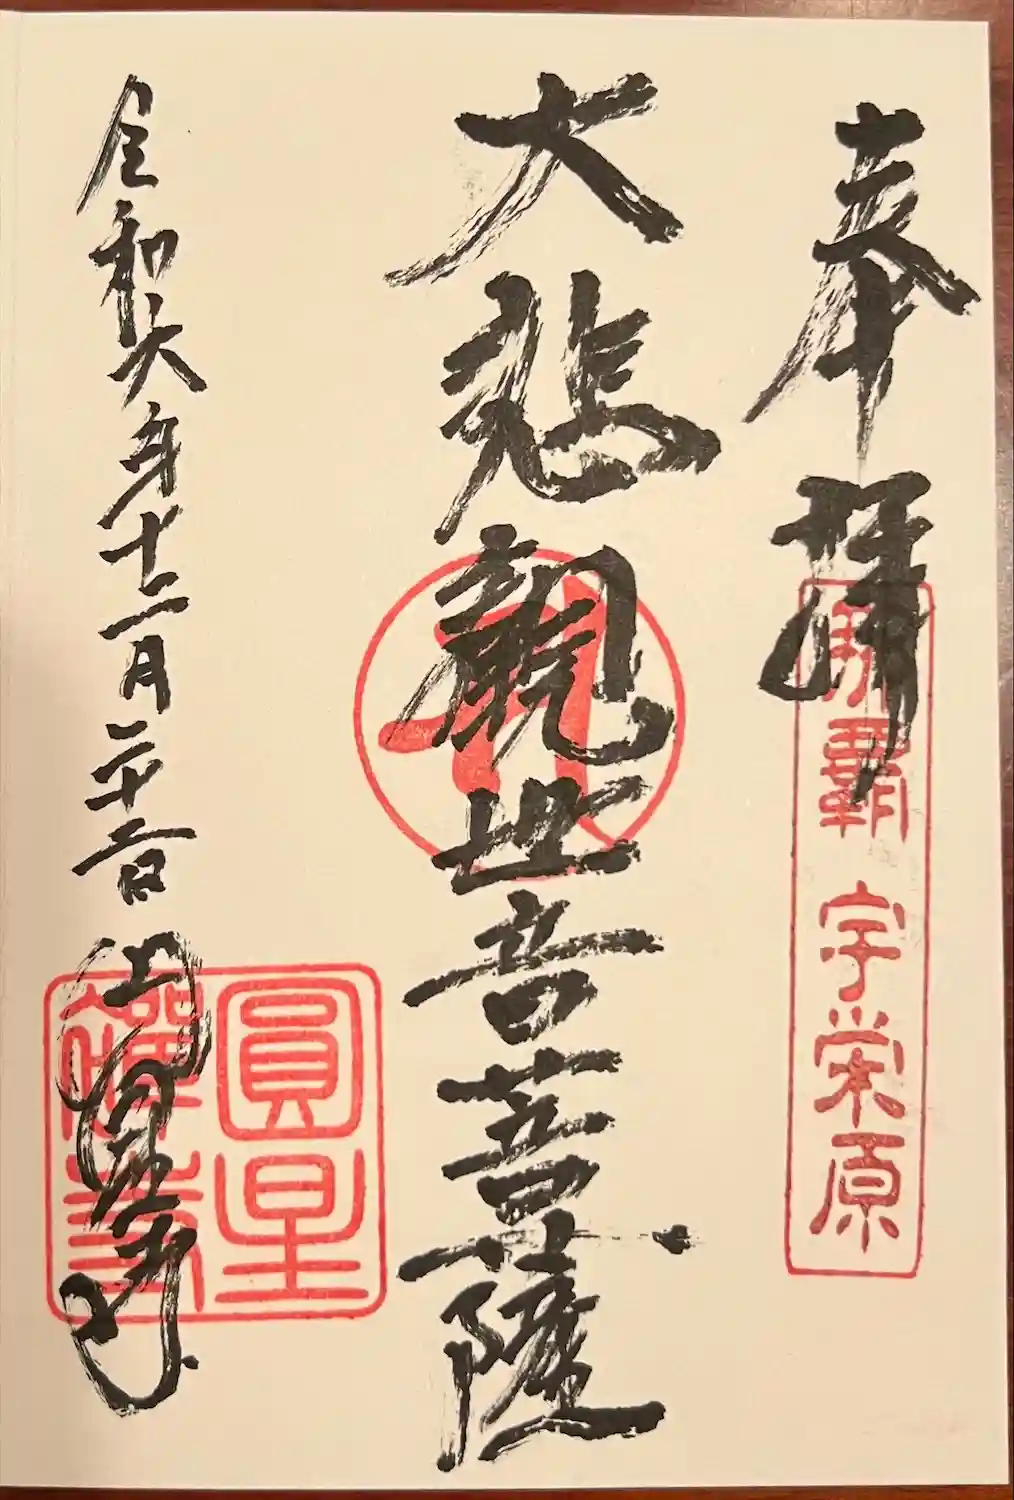 奉拝
那覇 宇栄原
大悲観世音菩薩
令和六年十二月二十一日
圓星寺
圓星
禪寺